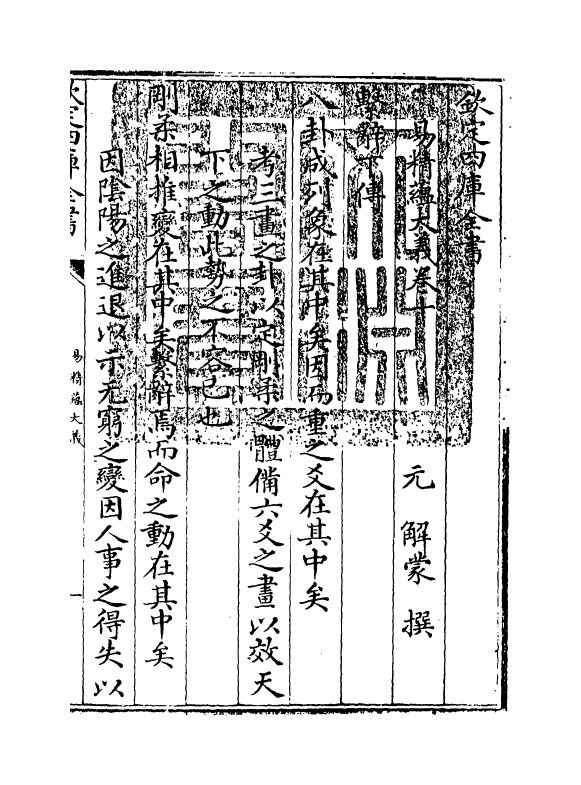 欽定四庫全書
易精蘊大義卷十
元　解蒙　撰
繫辭下傳
八卦成列象在其中矣因而重之爻在其中矣
考三畫之卦以定剛柔之體備六爻之畫以效天
下之動此勢之不容已也
剛柔相推變在其中矣繫辭焉而命之動在其中矣
因陰陽之進退以示无窮之變因人事之得失以
欽定四庫全書
易精蘊大義
一